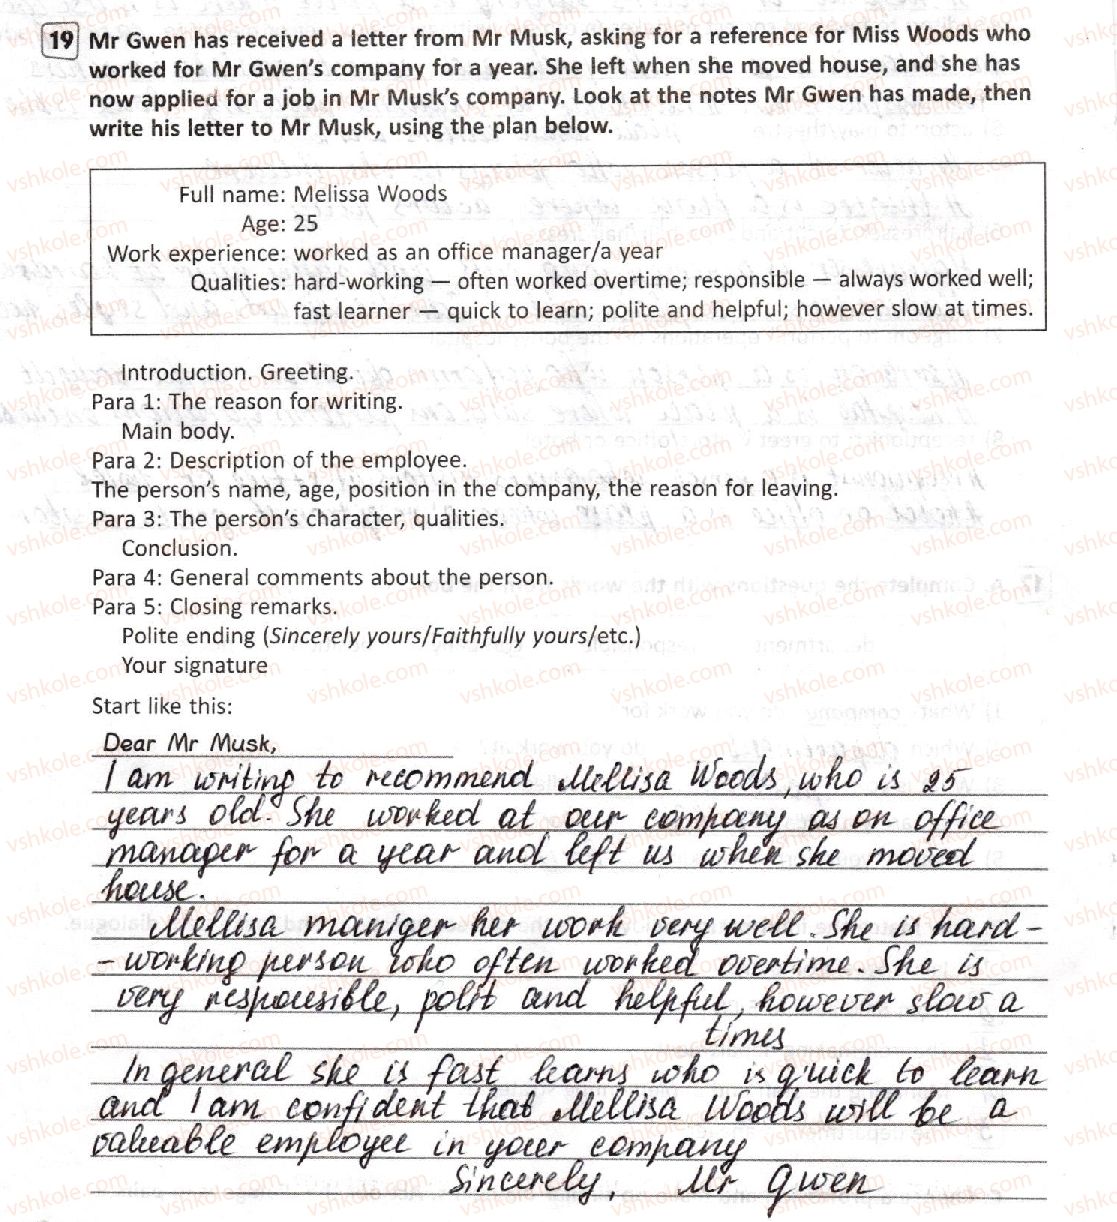 19 Mr Gwen has received a letter from Mr Musk, asking for a reference for Miss Woods who
worked for Mr Gwen's company for a year. She left when she moved house, and she has
now applied for a job in Mr Musk's company. Look at the notes Mr Gwen has made, then
write his letter to Mr Musk, using the plan below.
Full name: Melissa Woods
Age: 25
Work experience: worked as an office manager/a year
Qualities: hard-working — often worked overtime; responsible — always worked well;
fast learner — quick to learn; polite and helpful; however slow at times.
Introduction. Greeting.
Para 1: The reason for writing.
Main body.
Para 2: Description of the employee.
The person's name, age, position in the company, the reason for leaving.
Para 3: The person's character, qualities.
Conclusion.
Para 4: General comments about the person.
Para 5: Closing remarks.
Polite ending (Sincerely yours/Faithfully yours/etc.)
Your signature
Start like this:
Dear Mr Musk,
I am writing to recommend Mellisa Woods, who is 25
years old. She worked at our company as on office
manager for a year and left us when she moved
house.
Mellisa maniger her work very well. She is hard-
-working person who often worked overtime. She is
very responsible, polit and helpful, however slow a
times
In general she is fast learns who is quick to learn
and I am confident that Mellisa Woods will be a
valuable employee in your company
Sincerely, Mr Gwen
vshkole.com